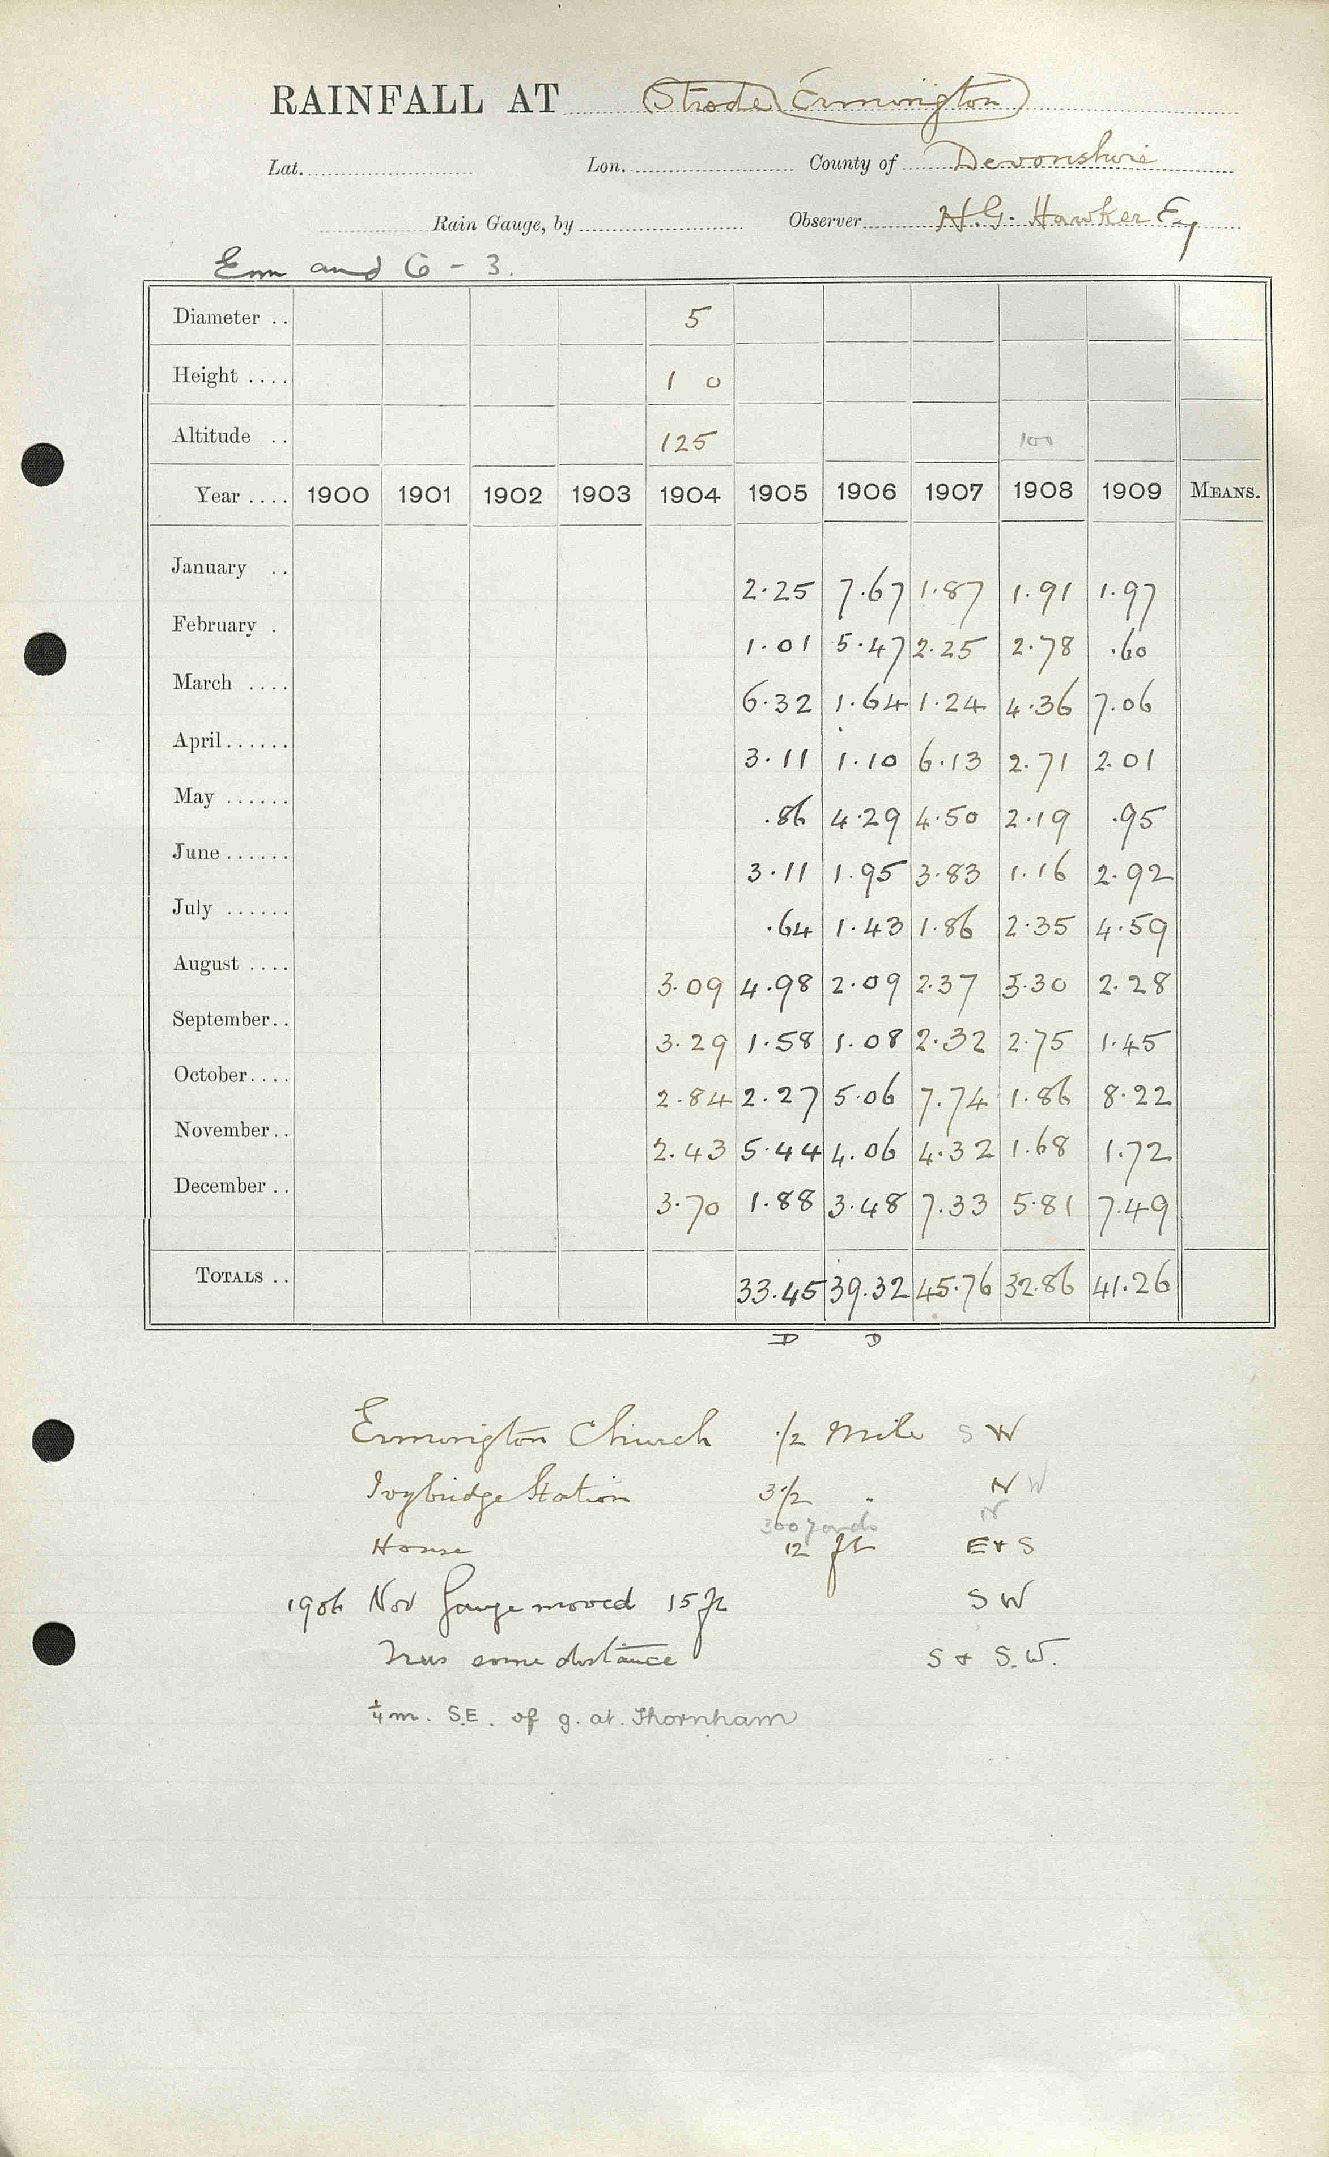 RAINFALL AT Strode Ermington
Lat. Lon. County of Devonshire
Rain Gauge, by Observer H.G. Hawker Esq
Erm and 6 - 3.
Diameter .. 5
Height .... 1 0
Altitude .. 125 100
Year .... 1900 1901 1902 1903 1904 1905 1906 1907 1908 1909 MEANS.
January .. 2.25 7.67 1.87 1.91 1.97
February . 1.01 5.47 2.25 2.78 .60
March .... 6.32 1.64 1.24 4.36 7.06
April ...... 3.11 1.10 6.13 2.71 2.01
May ...... .86 4.29 4.50 2.19 .95
June ...... 3.11 1.95 3.83 1.16 2.92
July ...... .64 1.43 1.86 2.35 4.59
August .... 3.09 4.98 2.09 2.37 3.30 2.28
September .. 3.29 1.58 1.08 2.32 2.75 1.45
October .... 2.84 2.27 5.06 7.74 1.86 8.22
November .. 2.43 5.44 4.06 4.32 1.68 1.72
December .. 3.70 1.88 3.48 7.33 5.81 7.49
TOTALS .. 33.45 39.32 45.76 32.86 41.26
D D
Ermington Church 1/2 Mile S W
Ivybridge Station 3 1/2 " N W
300 yards N
House 12 ft E + S
1906 Nov Gauge moved 15 ft S W
Trees some distance S + S.W.
1/4 m. S.E. of g. at Thornham